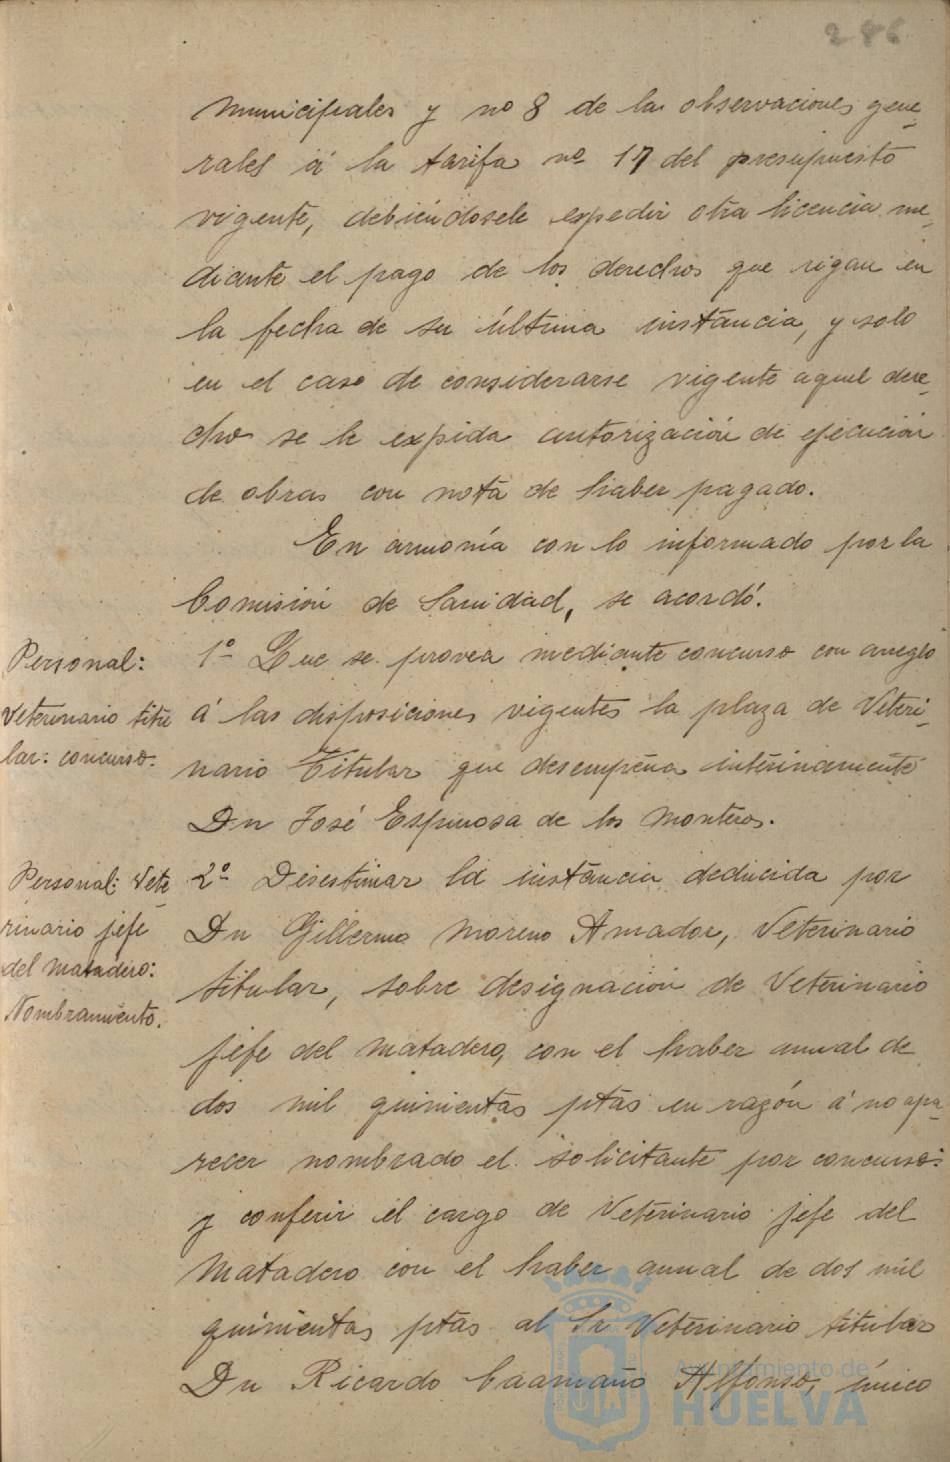 286
municipales y nº 8 de las observaciones gene-
rales á la tarifa nº 17 del presupuesto
vigente, debiéndosele expedir otra licencia me-
diante el pago de los derechos que rigan en
la fecha de su última instancia, y solo
en el caso de considerarse vigente aquel dere-
cho se le expida autorización de ejecución
de obras con nota de haber pagado.
En armonía con lo informado por la
Comisión de Sanidad, se acordó.
Personal:
Veterinario titu
lar: concurso.
1º Que se provea mediante concurso con arreglo
á las disposiciones vigentes la plaza de Veteri-
nario Titular que desempeña interinamente
Dn José Espinosa de los Monteros.
Personal: Vete
rinario jefe
del matadero:
Nombramiento.
2º Desestimar la instancia deducida por
Dn Gillermo Moreno Amador, Veterinario
titular, sobre designación de Veterinario
jefe del matadero, con el haber anual de
dos mil quinientas ptas en razón á no apa-
recer nombrado el solicitante por concurso:
y conferir el cargo de Veterinario jefe del
Matadero con el haber anual de dos mil
quinientas ptas al Sr Veterinario titular
Dn Ricardo Caamaño Alfonso, único
Ayuntamiento de
HUELVA